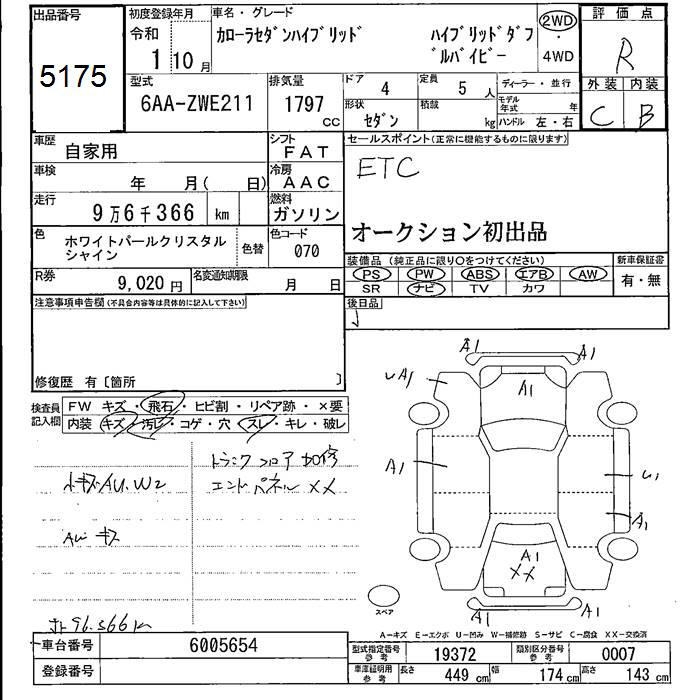 出品番号
5175
初度登録年月
令和
1 10 月
車名・グレード
カローラセダンハイブリッド
ハイブリッドダブ
ルバイビー
2WD
4WD
評価点
R
外装 内装
C B
型式
6AA-ZWE211
排気量
1797
cc
ドア
4
定員
5 人
形状
セダン
積載
kg
ディーラー・並行
モデル年式 年
ハンドル 左・右
車歴
自家用
シフト
FAT
車検
年 月( 日)
冷房
AAC
走行
9万6千366 km
燃料
ガソリン
色
ホワイトパールクリスタル
シャイン
色替
色コード
070
R券
9,020 円
名変通知期限
月 日
セールスポイント(正常に機能するものに限ります)
ETC
オークション初出品
装備品 (純正品に限り○をつけてください)
PS PW ABS エアB AW
SR ナビ TV カワ
新車保証書
有・無
後日品
注意事項申告欄(不具合内容等は具体的に記入して下さい)
修復歴 有〔箇所 〕
検査員
記入欄
FW キズ・飛石・ヒビ割・リペア跡・×要
内装 キズ・汚レ・コゲ・穴・スレ・キレ・破レ
トランクフロア 加修
エンドパネル XX
小キズAU.W2
AW キズ
96.366 km
A1
A1
A1
UA1
A1
U1
A1
A1
XX
A1
A1
スペア
A-キズ E-エクボ U-凹み W-補修跡 S-サビ C-腐食 XX-交換済
車台番号
6005654
登録番号
型式指定番号
参考
19372
類別区分番号
参考
0007
車庫証明用
参考
長さ
449 cm
幅
174 cm
高さ
143 cm